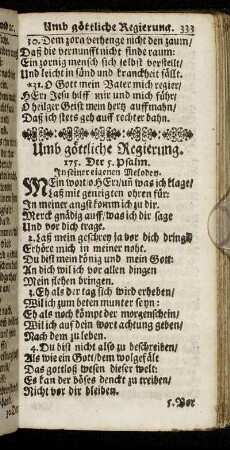 Umb göttliche Regierung. 333
30. Dem zorn verhenge nicht den zaum/
Daß die vernunfft nicht finde raum:
Ein zornig mensch sich selbst verstelt/
Und leicht in sünd und kranckheit fällt.
*31. O Gott mein Vater mich regier/
HErr Jesu hilff mir und mich führ/
O heilger Geist mein hertz auffmahn/
Daß ich stets geh auff rechter bahn.
Umb göttliche Regierung.
175. Der 5. Psalm.
In seiner eigenen Melodey.
MEin wort o HErr/ uñ was ich klage/
Laß mit geneigten ohren für:
In meiner angst komm ich zu dir.
Merck gnädig auff/ was ich dir sage
Und vor dich trage.
2. Laß mein geschrey ja vor dich dringẽ
Erhöre mich in meiner noht.
Du bist mein könig und mein Gott:
An dich wil ich vor allen dingen
Mein flehen bringen.
3. Eh als der tag sich wird erheben/
Wil ich zum beten munter seyn:
Eh als noch kömpt der morgenschein/
Wil ich auf dein wort achtung geben/
Nach dem zu leben.
4. Du bist nicht also zu beschreiben/
Als wie ein Gott/ dem wolgefält
Das gottloß wesen dieser welt:
Es kan der böses denckt zu treiben/
Nicht vor dir bleiben.
5. Vor